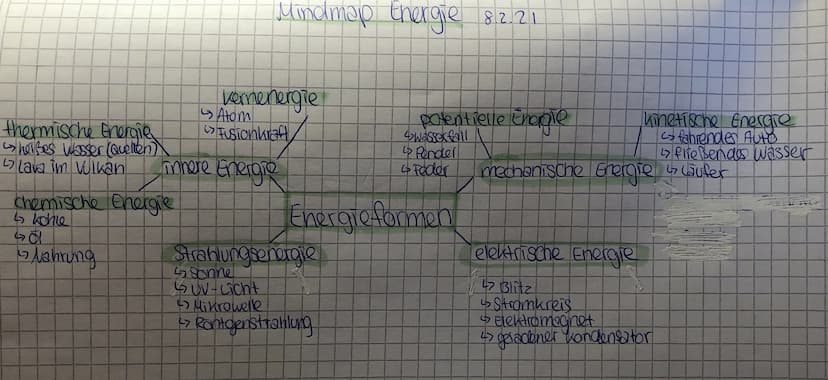 Mindmap Energie 8.2.21
Kernenergie
↳ Atom
↳ Fusionkraft
thermische Energie
↳ heißes Wasser (quellen)
↳ Lava im Vulkan
innere Energie
chemische Energie
↳ Kohle
↳ Öl
↳ Nahrung
potentielle Energie
↳ Wasserfall
↳ Pendel
↳ Feder
kinetische Energie
↳ fahrendes Auto
↳ fließendes Wasser
↳ Läufer
mechanische Energie
Energieformen
Strahlungsenergie
↳ Sonne
↳ UV-Licht
↳ Mikrowelle
↳ Röntgenstrahlung
elektrische Energie
↳ Blitz
↳ Stromkreis
↳ Elektromagnet
↳ geladener Kondensator